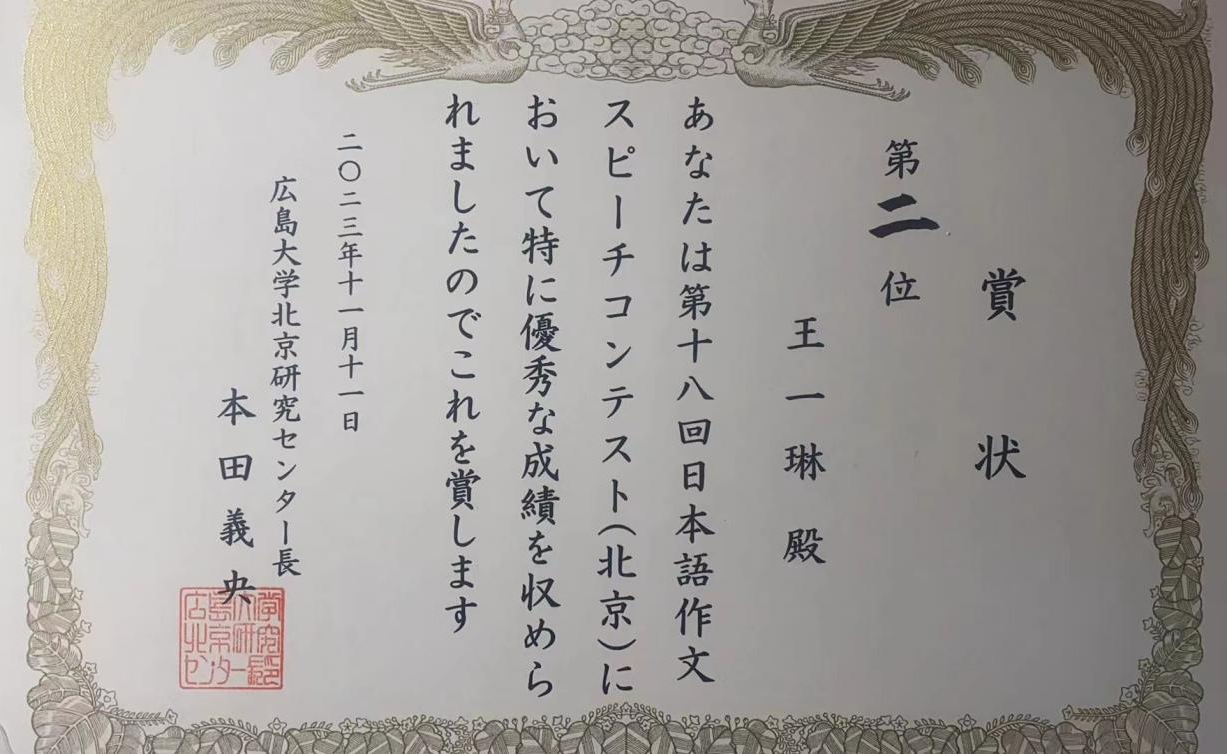 賞状
第二位
王一琳殿
あなたは第十八回日本語作文
スピーチコンテスト(北京)に
おいて特に優秀な成績を収めら
れましたのでこれを賞します
二〇二三年十一月十一日
広島大学北京研究センター長
本田義央